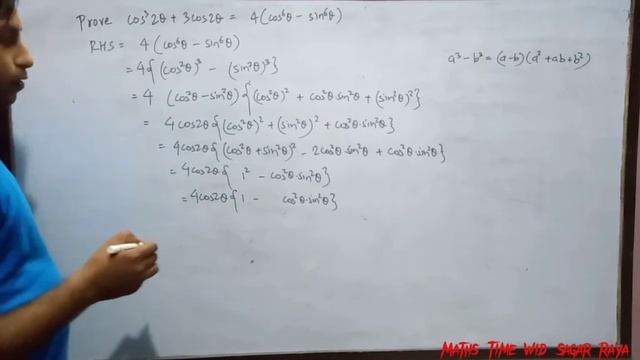 Prove cos³2θ + 3cos2θ = 4(cos⁶θ - sin⁶θ)
RHS = 4(cos⁶θ - sin⁶θ)
a³ - b³ = (a-b)(a² + ab + b²)
= 4{(cos²θ)³ - (sin²θ)³}
= 4 (cos²θ - sin²θ){(cos²θ)² + cos²θ·sin²θ + (sin²θ)²}
= 4cos2θ{(cos²θ)² + (sin²θ)² + cos²θ·sin²θ}
= 4cos2θ{(cos²θ + sin²θ)² - 2cos²θ·sin²θ + cos²θ·sin²θ}
= 4cos2θ{ 1² - cos²θ·sin²θ}
= 4cos2θ{ 1 - cos²θ·sin²θ}
MATHS TIME WID SAGAR RAYA